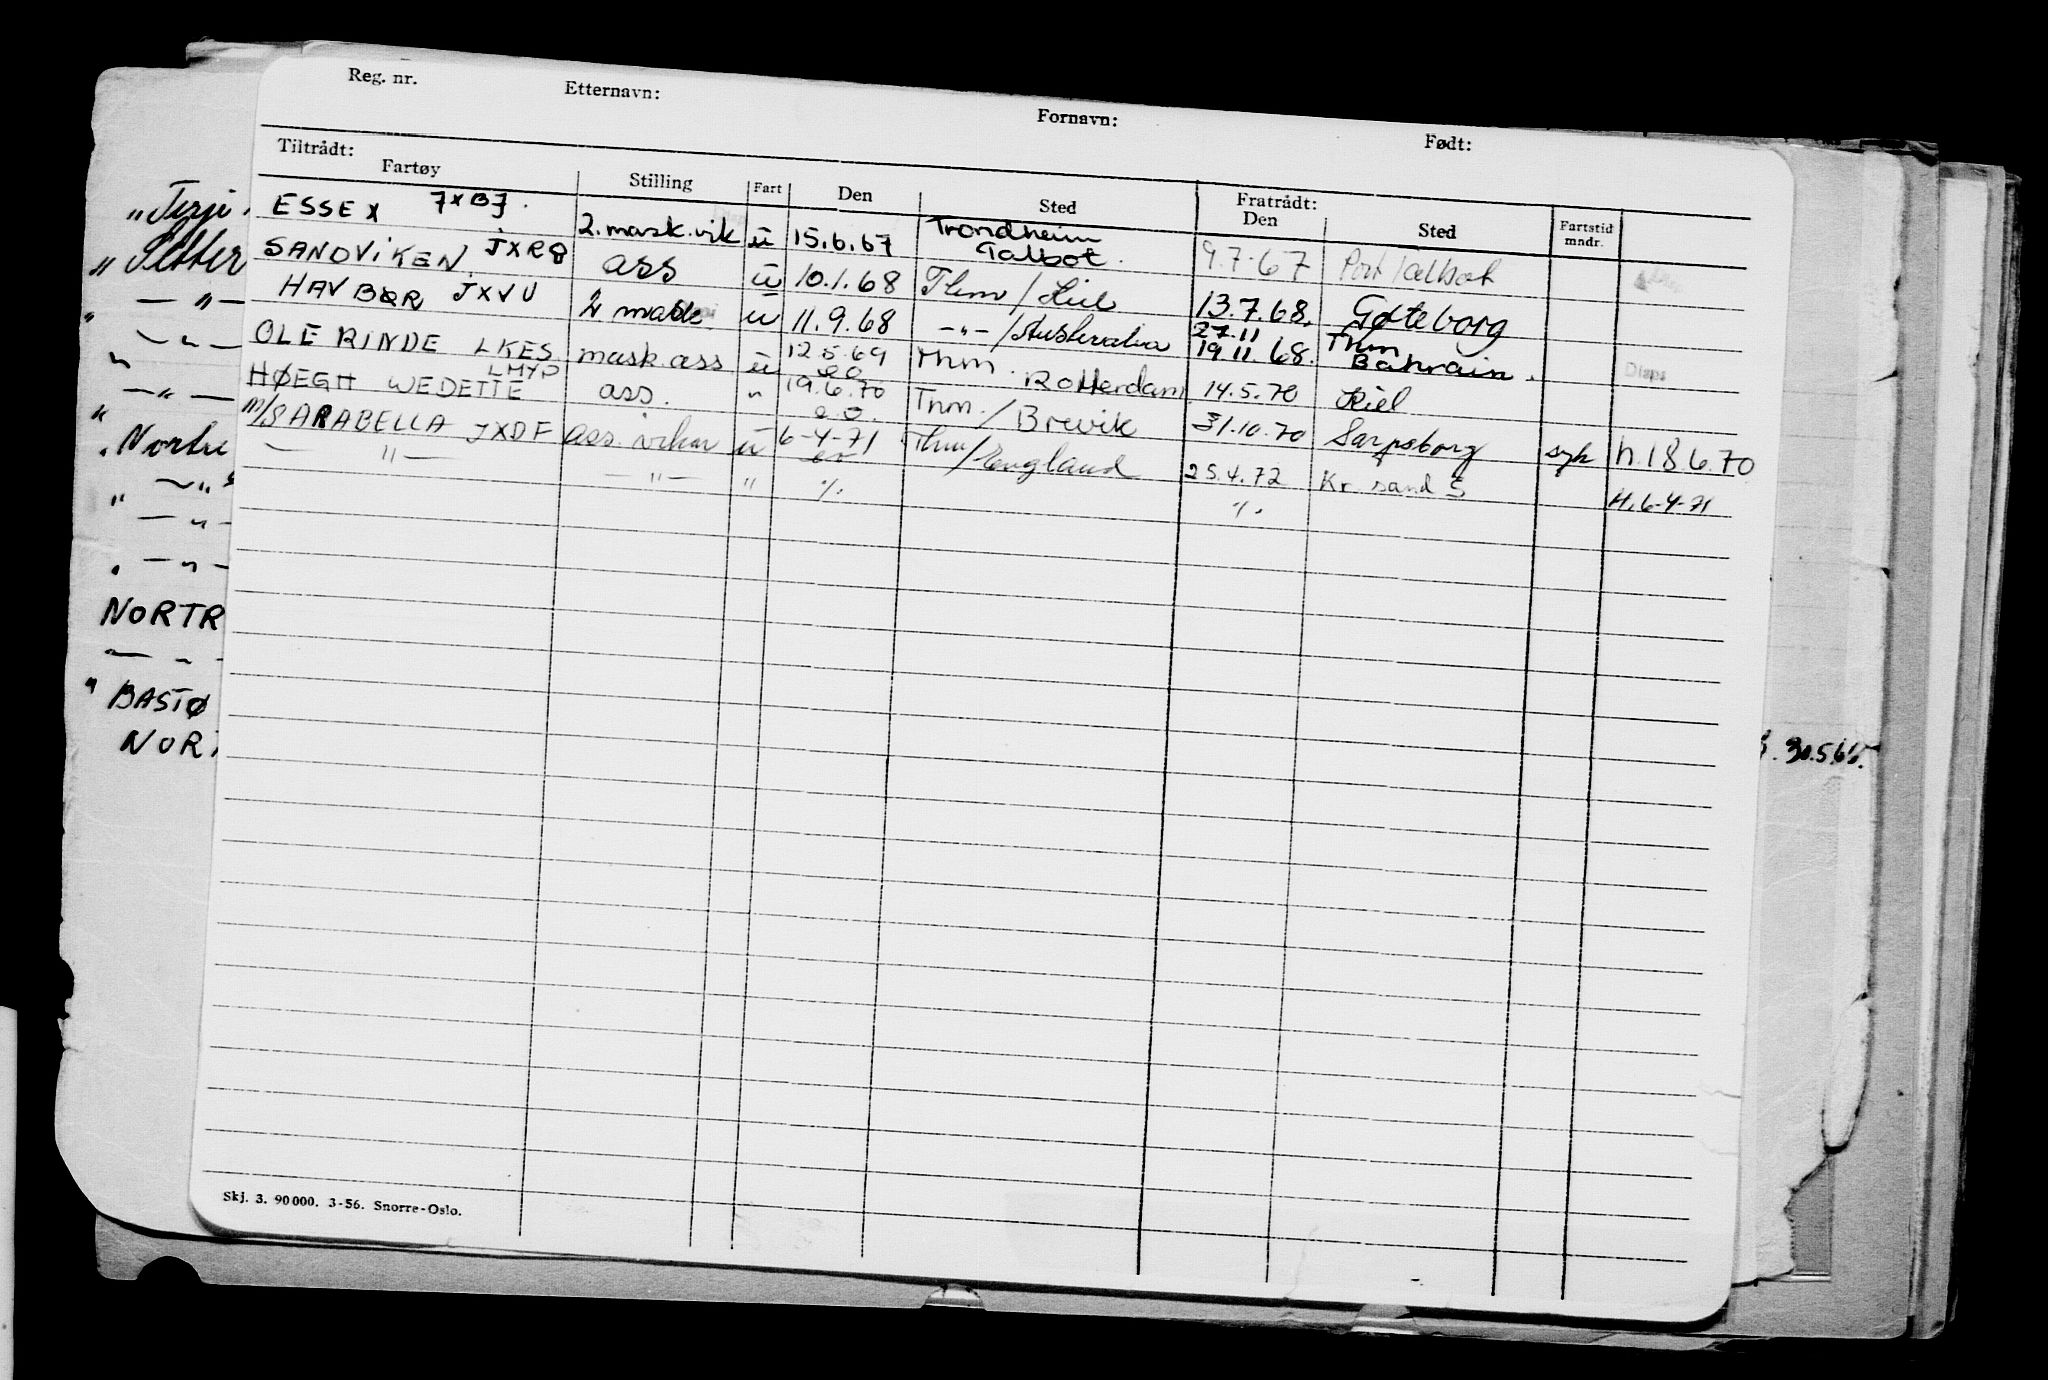 Reg. nr. Etternavn: Fornavn: Født:
Tiltrådt: Fratrådt:
Fartøy Stilling Fart Den Sted Den Sted Fartstid mndr.
ESSEX JXBJ. 2. mask. vik u 15.6.67 Trondheim Talbot. 9.7.67 Port Talbot
SANDVIKEN JXRQ ass u 10.1.68 Thm / Kiel 13.7.68. Gøteborg
HAVBØR JXVU 2 mask u 11.9.68 -"-/Australia 27.11 19 11. 68. Thm Bahrain.
OLE RINDE LKES mask ass u 12.5.69 Thm. Rotterdam 14.5.70 Kiel Disps
HØEGH WEDETTE LMYP ass. " 19.6.70 Thm. / Brevik 31.10.70 Sarpsborg syk h. 18 6.70
M/S ARABELLA JXDF ass. vikar u 6-4-71 Thm / England 25.4.72 Kr. sand S H. 6-4-71
— " — — " — " %. %.
Skj. 3. 90000. 3-56. Snorre-Oslo.
" Terje
" Petter
— " —
— " —
— " —
" Nortre
" — " —
— " —
— " —
NORTR
— " —
" BASTØ
NORT
30.5.66.